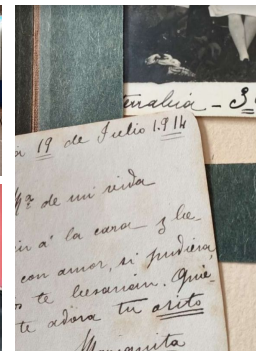 nrabia - 3
19 de Julio 1.914
de mi vida
á la cara y be-
con amor, si pudiera,
te besarian. Quie-
te adora tu osito
Mariquita